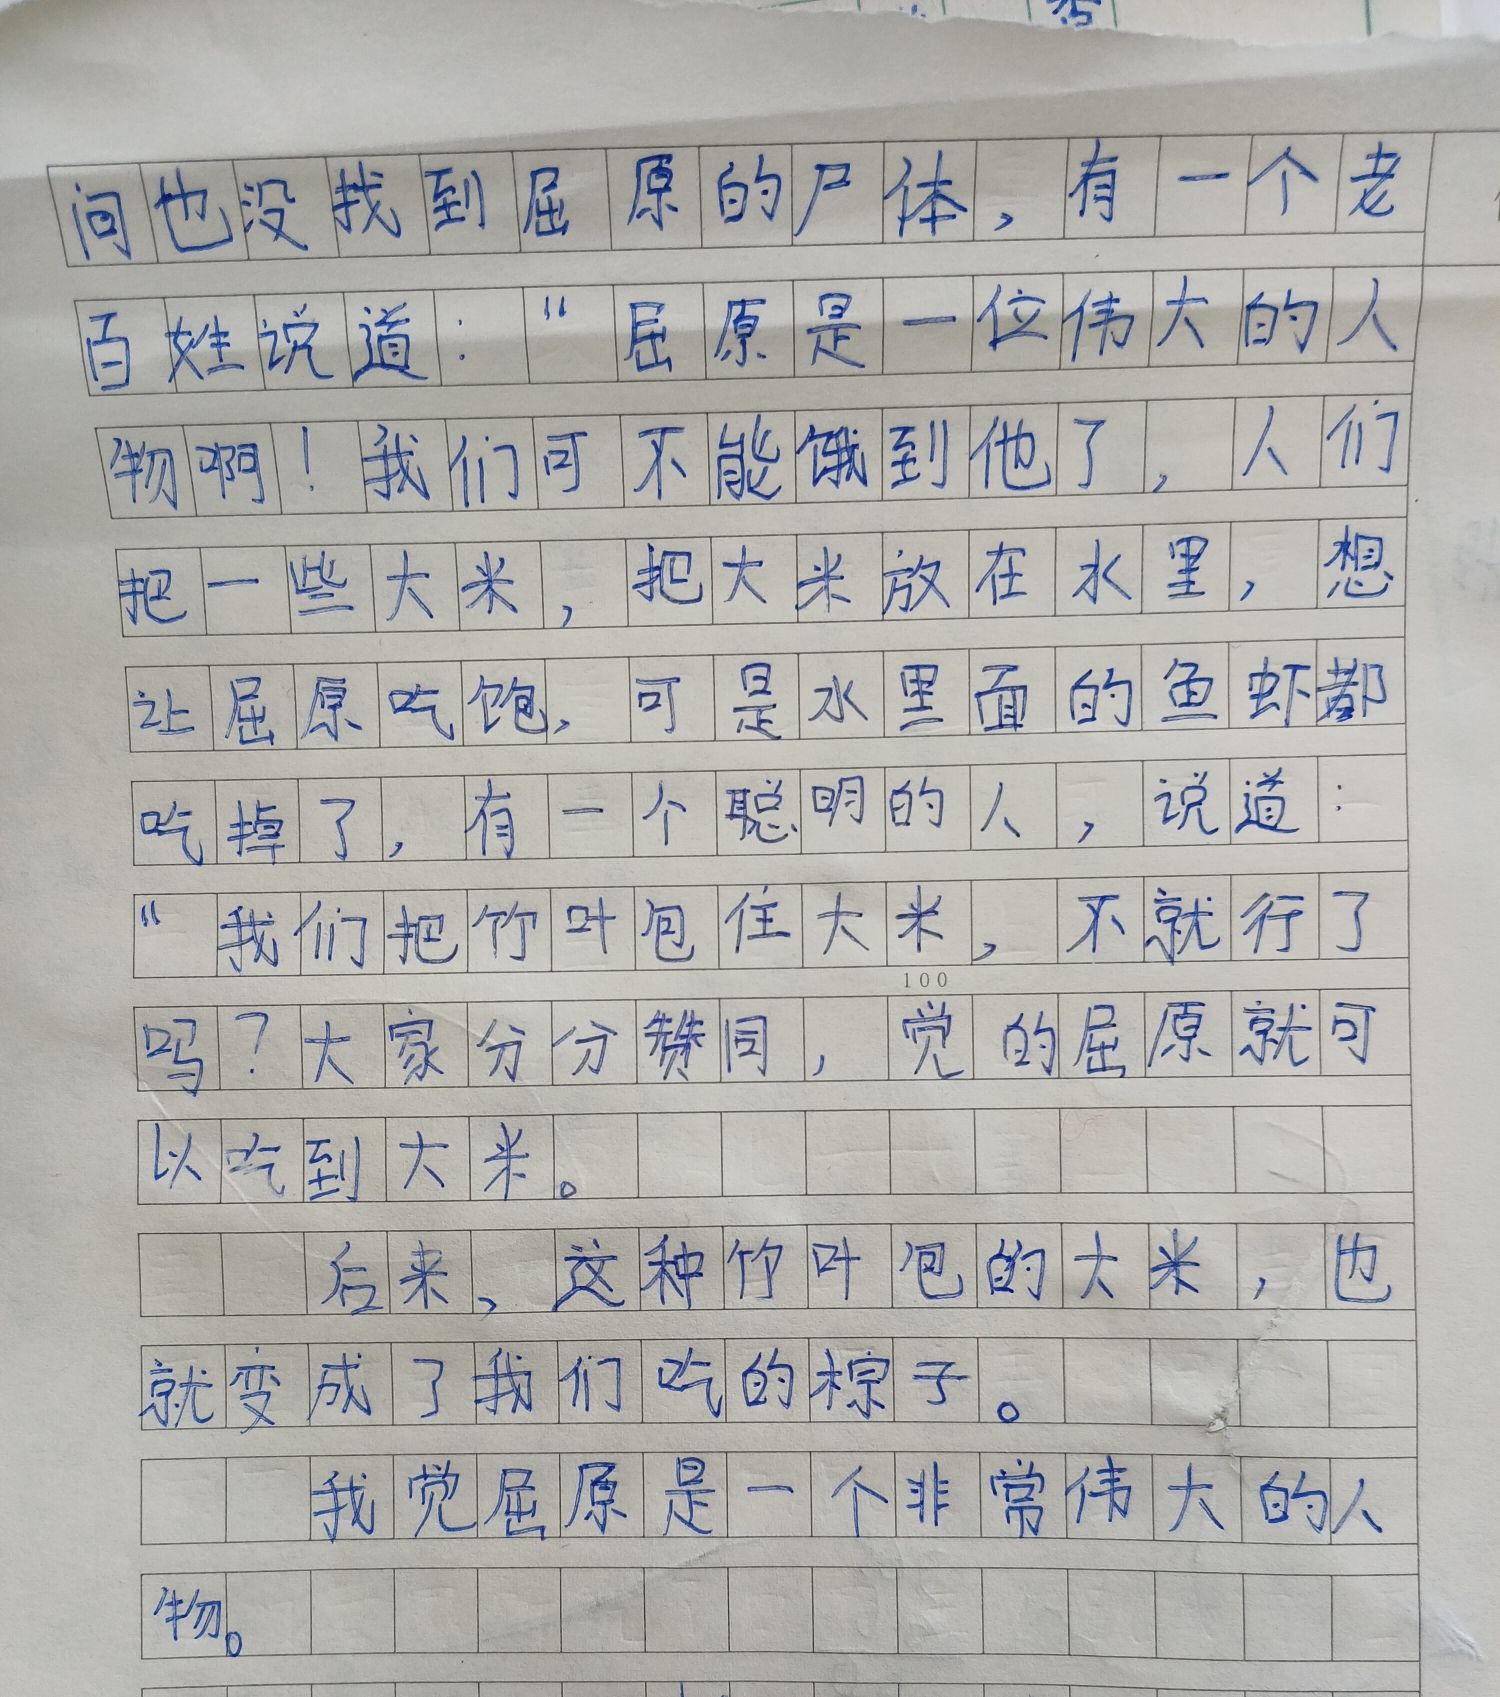 间也没找到屈原的尸体,有一个老
百姓说道:“屈原是一位伟大的人
物啊!我们可不能饿到他了,人们
把一些大米,把大米放在水里,想
让屈原吃饱,可是水里面的鱼虾都
吃掉了,有一个聪明的人,说道:
“我们把竹叶包住大米,不就行了
100
吗?大家分分赞同,觉的屈原就可
以吃到大米。
后来,这种竹叶包的大米,也
就变成了我们吃的棕子。
我觉屈原是一个非常伟大的人
物。